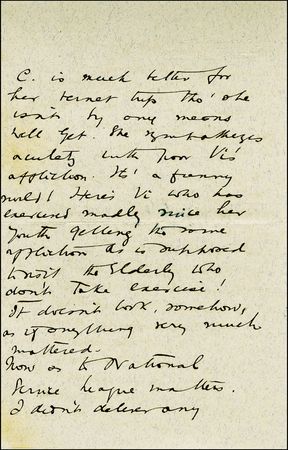 C. is much better for
her ternet trip tho' she
isn't by any means
well yet. She sympathizes
acutely with poor Vi's
affliction. It's a funny
world! Here's Vi who has
exercised madly since her
youth getting the same
affliction as is supposed
to visit the Elderly who
don't take exercise!
It doesn't look, somehow,
as if anything very much
mattered.
Now as to National
Service League matters.
I didn't deliver any